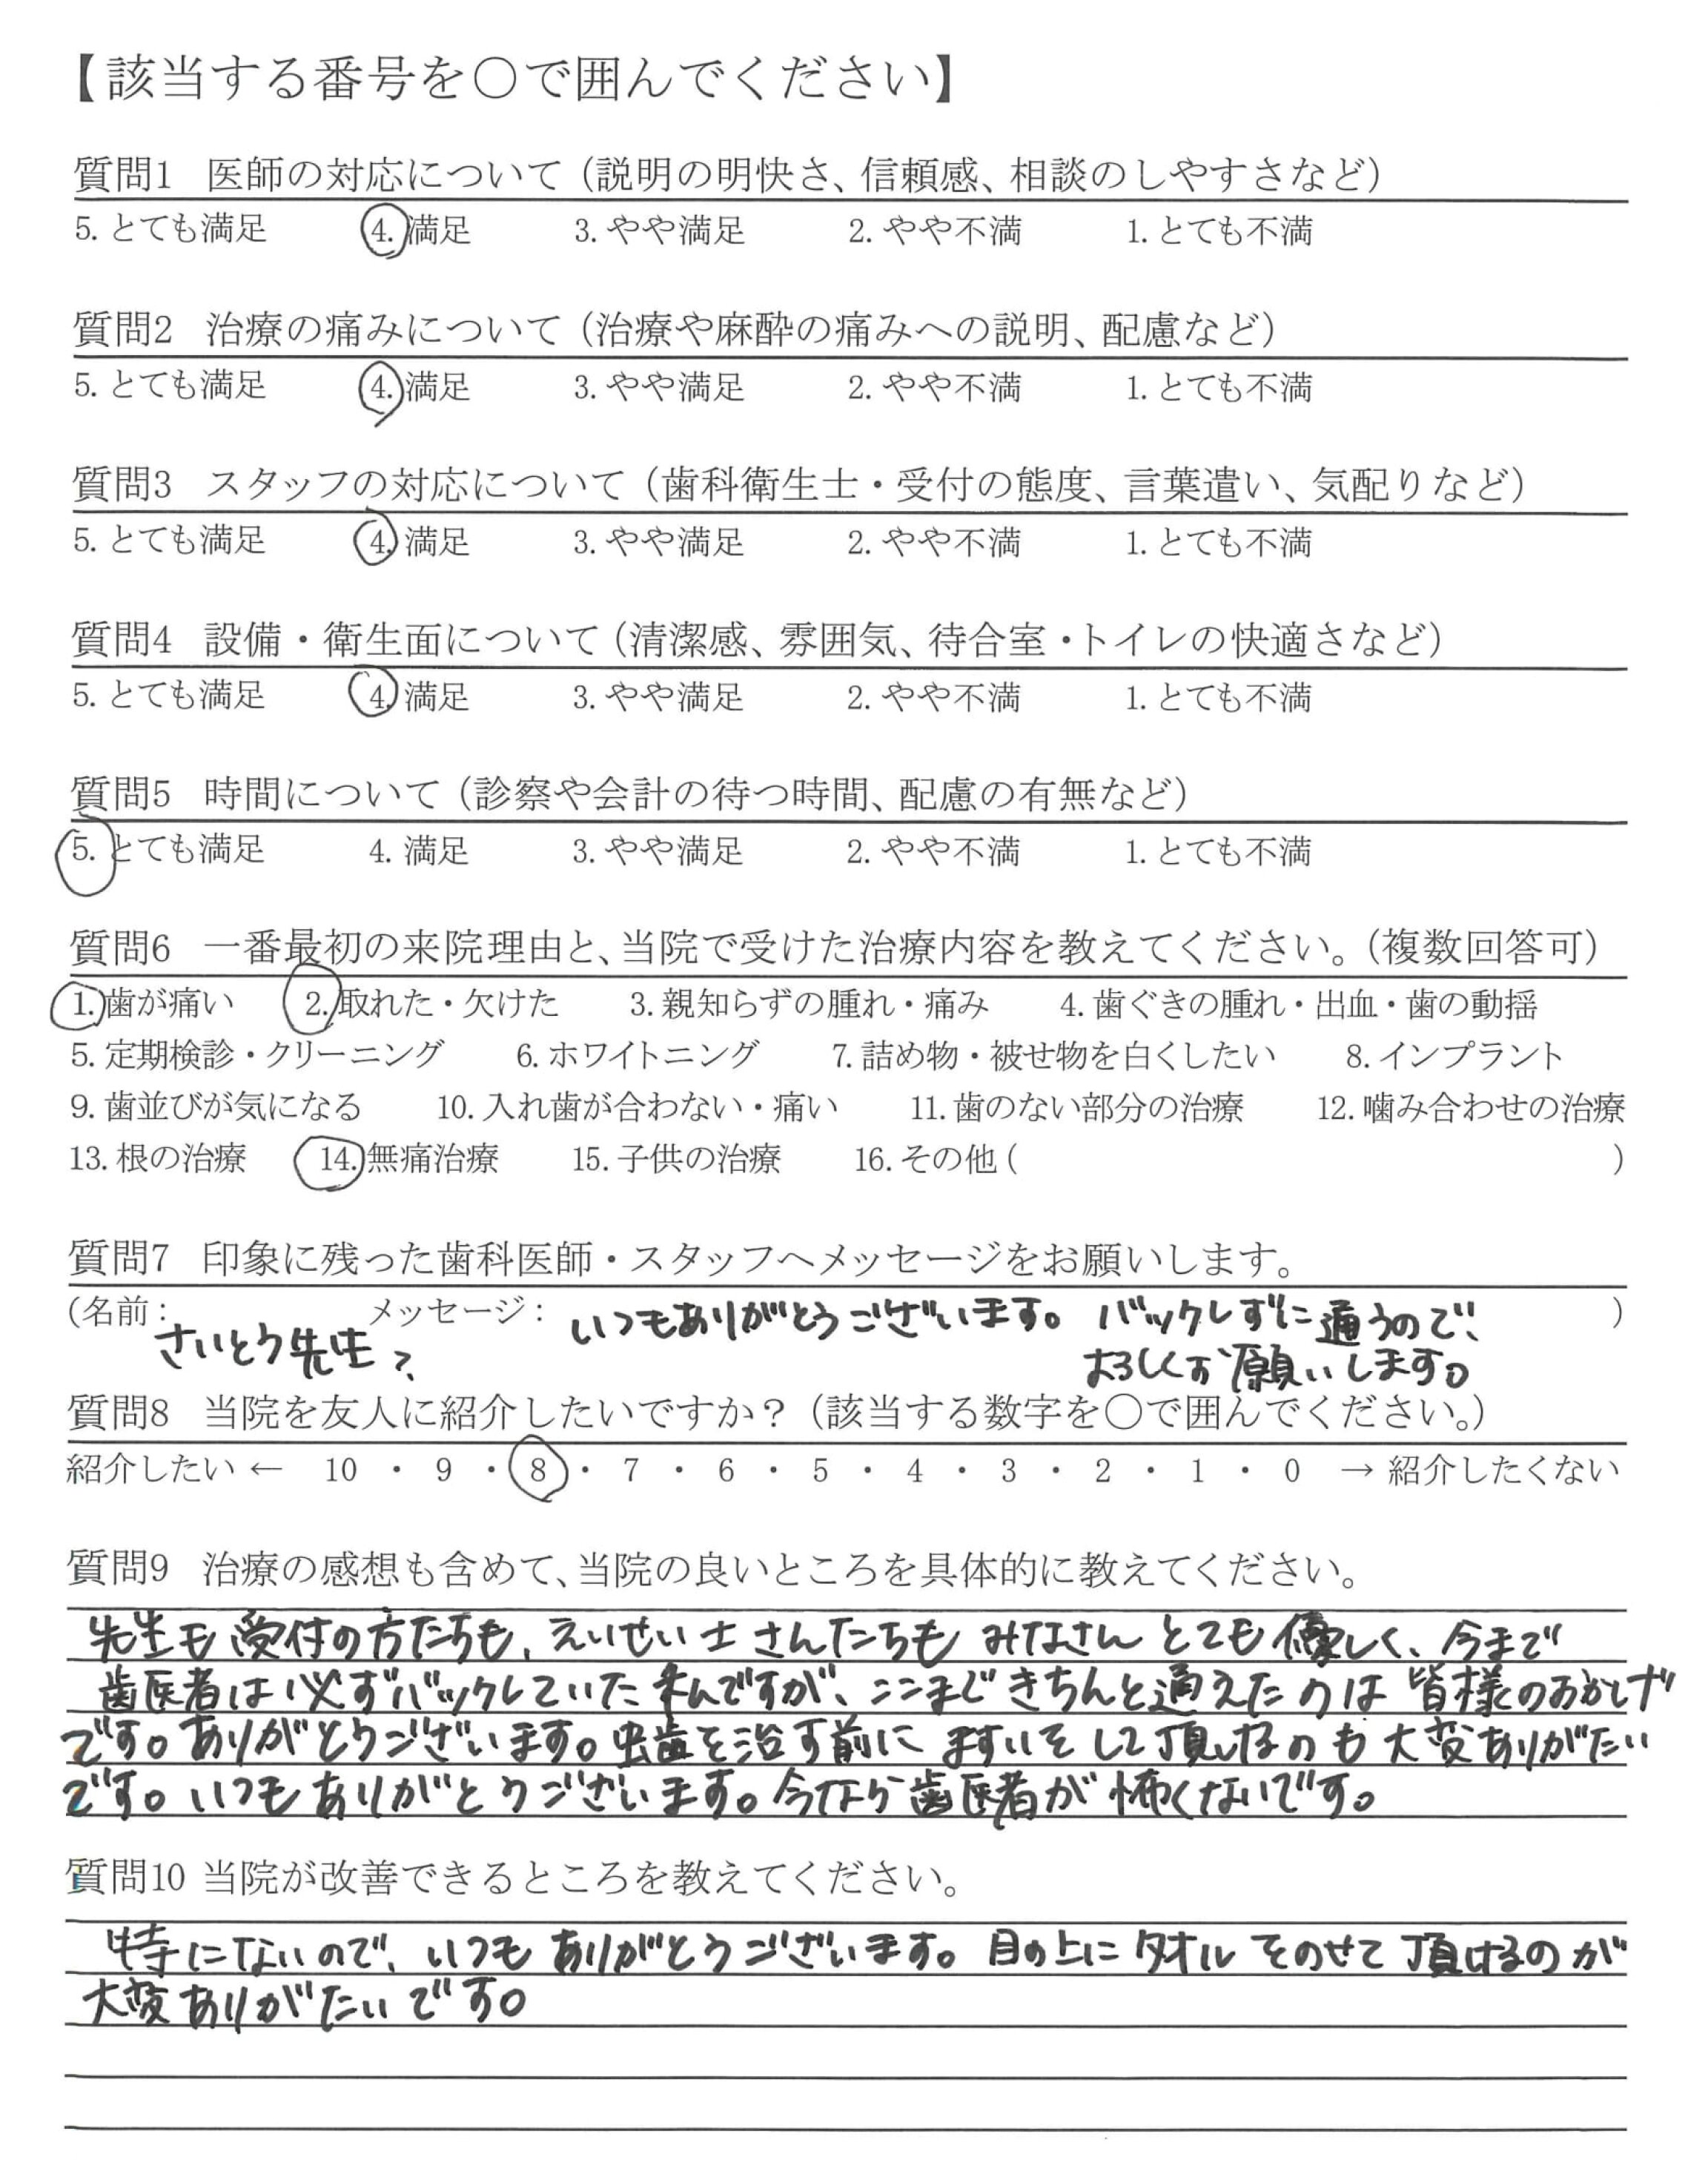 【該当する番号を○で囲んでください】
質問1 医師の対応について（説明の明快さ、信頼感、相談のしやすさなど）
5. とても満足 4. 満足 3. やや満足 2. やや不満 1. とても不満
質問2 治療の痛みについて（治療や麻酔の痛みへの説明、配慮など）
5. とても満足 4. 満足 3. やや満足 2. やや不満 1. とても不満
質問3 スタッフの対応について（歯科衛生士・受付の態度、言葉遣い、気配りなど）
5. とても満足 4. 満足 3. やや満足 2. やや不満 1. とても不満
質問4 設備・衛生面について（清潔感、雰囲気、待合室・トイレの快適さなど）
5. とても満足 4. 満足 3. やや満足 2. やや不満 1. とても不満
質問5 時間について（診察や会計の待つ時間、配慮の有無など）
5. とても満足 4. 満足 3. やや満足 2. やや不満 1. とても不満
質問6 一番最初の来院理由と、当院で受けた治療内容を教えてください。（複数回答可）
1. 歯が痛い 2. 取れた・欠けた 3. 親知らずの腫れ・痛み 4. 歯ぐきの腫れ・出血・歯の動揺
5. 定期検診・クリーニング 6. ホワイトニング 7. 詰め物・被せ物を白くしたい 8. インプラント
9. 歯並びが気になる 10. 入れ歯が合わない・痛い 11. 歯のない部分の治療 12. 噛み合わせの治療
13. 根の治療 14. 無痛治療 15. 子供の治療 16. その他 ( )
質問7 印象に残った歯科医師・スタッフへメッセージをお願いします。
(名前： メッセージ： いつもありがとうございます。 バックレずに通うので、 )
さいとう先生？ よろしくお願いします。
質問8 当院を友人に紹介したいですか？（該当する数字を○で囲んでください。）
紹介したい ← 10 ・ 9 ・ 8 ・ 7 ・ 6 ・ 5 ・ 4 ・ 3 ・ 2 ・ 1 ・ 0 → 紹介したくない
質問9 治療の感想も含めて、当院の良いところを具体的に教えてください。
先生も受付の方たちも、えいせい士さんたちもみなさんとても優しく、今まで
歯医者は必ずバックレていた私ですが、ここまできちんと通えたのは皆様のおかげ
です。ありがとうございます。虫歯を治す前にますいをして頂けるのも大変ありがたい
です。いつもありがとうございます。今なら歯医者が怖くないです。
質問10 当院が改善できるところを教えてください。
特にないので、いつもありがとうございます。目の上にタオルをのせて頂けるのが
大変ありがたいです。